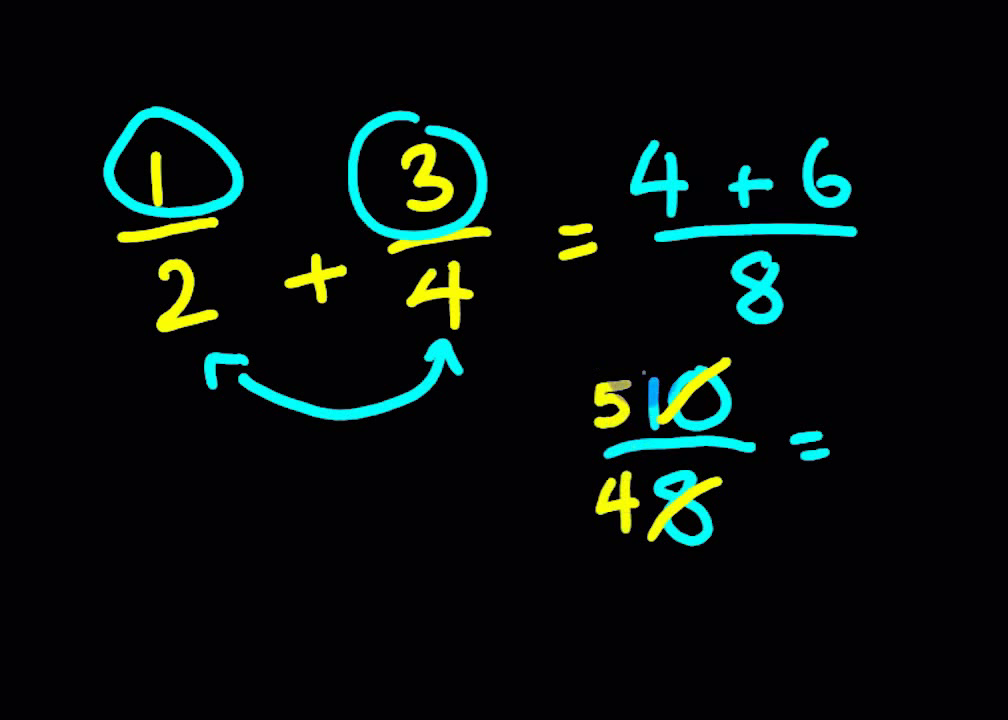 1/2 + 3/4 = 4 + 6/8
5 10/4 8 =